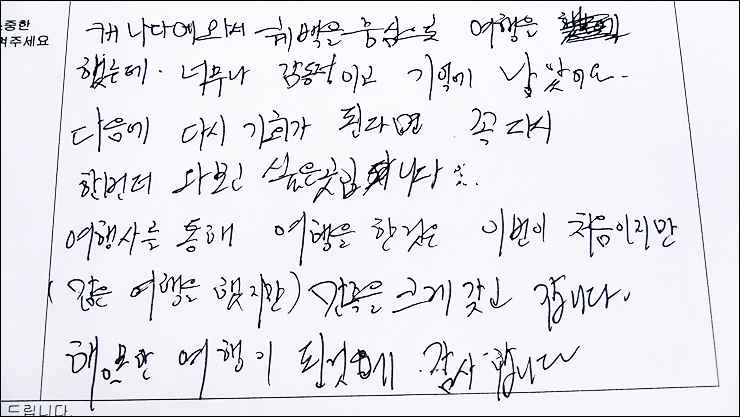 소중한
겨주세요
캐나다에 와서 퀘백을 중심으로 여행을
했는데. 너무나 감동적이고 기억에 남았어요.
다음에 다시 기회가 된다면 꼭 다시
한번더 와보고 싶은곳입니다
여행사를 통해 여행을 한것은 이번이 처음이지만
(짧은 여행을 했지만) 감동을 크게 갖고 갑니다.
행복한 여행이 된것에 감사합니다
드립니다.